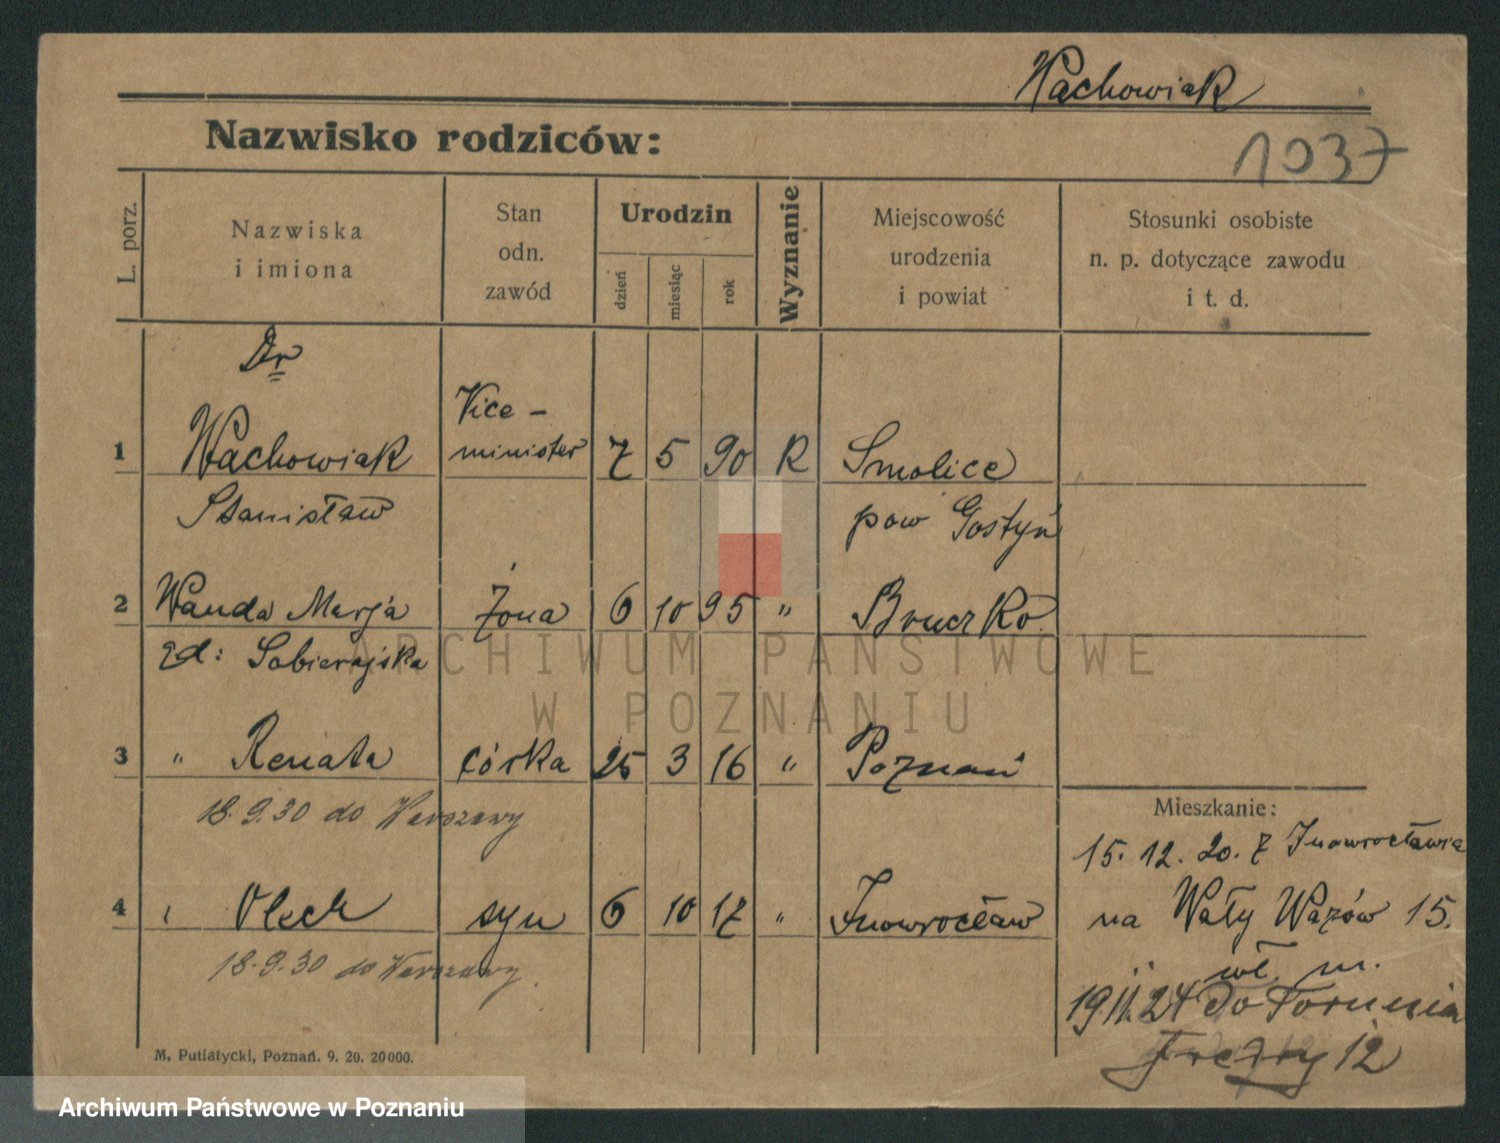 Wachowiak
Nazwisko rodziców:
1037
L. porz.
Nazwiska
i imiona
Stan
odn.
zawód
Urodzin
dzień
miesiąc
rok
Wyznanie
Miejscowość
urodzenia
i powiat
Stosunki osobiste
n. p. dotyczące zawodu
i t. d.
Dr
1 Wachowiak Vice-minister 7 5 90 R Smolice
Stanisław pow Gostyń
2 Wanda Marja Żona 6 10 95 " Bruczko.
zd: Sobierajska
3 " Renata córka 25 3 16 " Poznań
18.9.30 do Warszawy
4 Olech syn 6 10 17 " Inowrocław
18.9.30 do Warszawy.
Mieszkanie:
15. 12. 20. z Inowrocławia
na Wały Wazów 15.
wł. m.
19.11.24 do Torunia
12
M. Putiatycki, Poznań. 9. 20. 20000.
ARCHIWUM PAŃSTWOWE
W POZNANIU
Archiwum Państwowe w Poznaniu